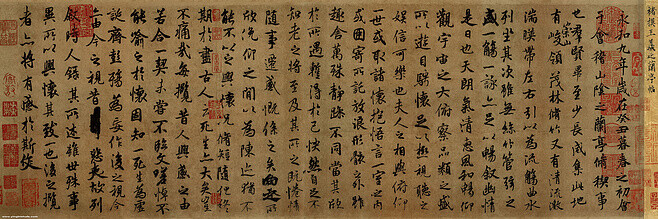 褚模王羲之蘭亭帖
永和九年歲在癸丑暮春之初會
于會稽山陰之蘭亭脩稧事
也羣賢畢至少長咸集此地
有崇山峻領茂林脩竹又有清流激
湍暎帶左右引以為流觴曲水
列坐其次雖無絲竹管弦之
盛一觴一詠亦足以暢敘幽情
是日也天朗氣清惠風和暢仰
觀宇宙之大俯察品類之盛
所以遊目騁懷足以極視聽之
娛信可樂也夫人之相與俯仰
一世或取諸懷抱悟言一室之內
或因寄所託放浪形骸之外雖
趣舍萬殊靜躁不同當其欣
於所遇蹔得於己怏然自足不
知老之將至及其所之既惓情
隨事遷感慨係之矣向之所
欣俛仰之閒以為陳迹猶不
能不以之興懷況脩短隨化終
期於盡古人云死生亦大矣豈
不痛哉每攬昔人興感之由
若合一契未嘗不臨文嗟悼不
能喻之於懷固知一死生為虛
誕齊彭殤為妄作後之視今
亦由今之視昔悲夫故列
敘時人錄其所述雖世殊事
異所以興懷其致一也後之攬
者亦將有感於斯文